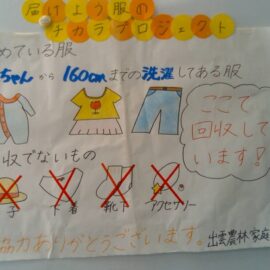 届けよう服の
チカラプロジェクト
めている服
ちゃんから160cmまでの洗濯してある服
ここで
回収して
います!
収でないもの
子 下着 靴下 アクセサリー
協力ありがとうございます。
出雲農林家庭